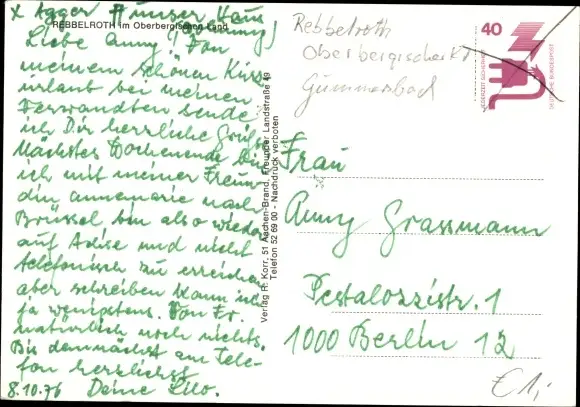 x Agger # unser Haus
REBBELROTH im Oberbergischen Land
Liebe Anny! Von
meinem schönen Kurz-
urlaub bei meinen
Verwandten sende
ich Dir herzliche Grüße
Nächstes Wochenende bin
ich mit meiner Freun-
din Annemarie nach
Brüssel bin also wieder
auf Achse und nicht
telefonisch zu erreichen
aber schreiben kann ich
ja wenigstens. Von Fr.
natürlich noch nichts.
Bis demnächst am Tele-
fon herzlichst
8.10.76 Deine Lilo.
Verlag R. Korr, 51 Aachen-Brand, Freunder Landstraße 49
Telefon 52 69 00 - Nachdruck verboten
Rebbelroth
Oberbergischer Kr
Gummersbach
40
JEDERZEIT SICHERHEIT
DEUTSCHE BUNDESPOST
Frau
Anny Grassmann
Pestalozzistr. 1
1000 Berlin 12
€ 1,-